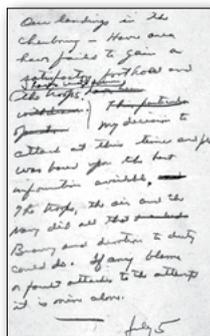 Our landings in the
Cherbourg - Havre area
have failed to gain a
satisfactory foothold and
the troops have been
withdrawn. This particular
operation My decision to
attack at this time and place
was based upon the best
information available,
The troops, the air and the
Navy did all that
Bravery and devotion to duty
could do. If any blame
or fault attaches to the attempt
it is mine alone.
July 5